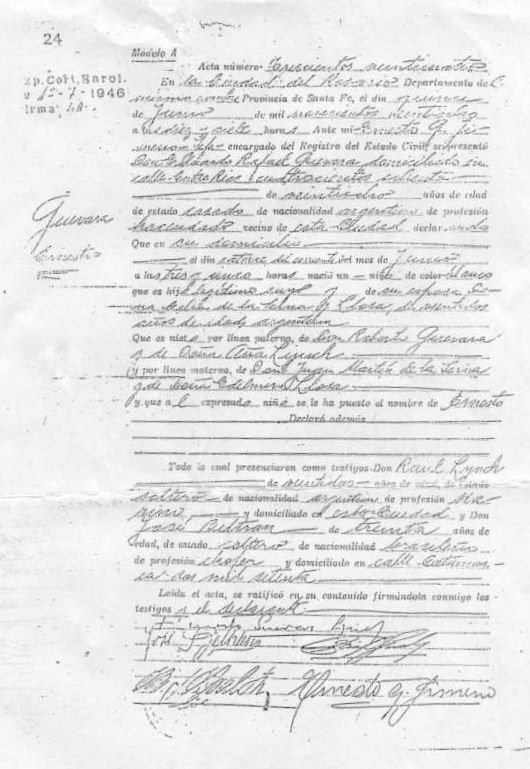 24
Modelo A
Acta número Trescientos veinticuatro
xp. Coll. Barol.
o 15-7-1946
irma:
En la Ciudad del Rosario Departamento del
mismo nombre Provincia de Santa Fe, el día quince
de Junio de mil novecientos veintiocho
a las diez y siete horas Ante mi Ernesto G. Ji-
meno Jefe encargado del Registro del Estado Civil, se presentó
Don Ernesto Rafael Guevara domiciliado en
calle Entre Rios cuatrocientos ochenta
de veintiocho años de edad
de estado casado de nacionalidad argentino de profesión
hacendado vecino de esta Ciudad declarando
Guevara
Ernesto
Que en su domicilio
el día catorce del corriente del mes de Junio
a las tres y cinco horas nació un niño de color blanco
que es hijo legítimo suyo y de su esposa Do-
ña Celia de la Serna y Llosa, de veintidos
años de edad argentina
Que es nieto por línea paterna, de Don Roberto Guevara
y de Doña Ana Lynch
y por línea materna, de Don Juan Martín de la Serna
y de Doña Edelmira Llosa
y que a el expresado niño se le ha puesto el nombre de Ernesto
Declaró además
Todo lo cual presenciaron como testigos Don Raul Lynch
de veintidos años de edad, de estado
soltero de nacionalidad argentino de profesión Ma-
rino y domiciliado en esta Ciudad y Don
José Beltran de treinta años de
edad, de estado soltero de nacionalidad brasileño
de profesión chofer y domiciliado en calle Catamar-
ca dos mil setenta
Leída el acta, se ratificó en su contenido firmándola conmigo los
testigos y el declarante
Ernesto Guevara Lynch
José Beltran
Ernesto G. Jimeno